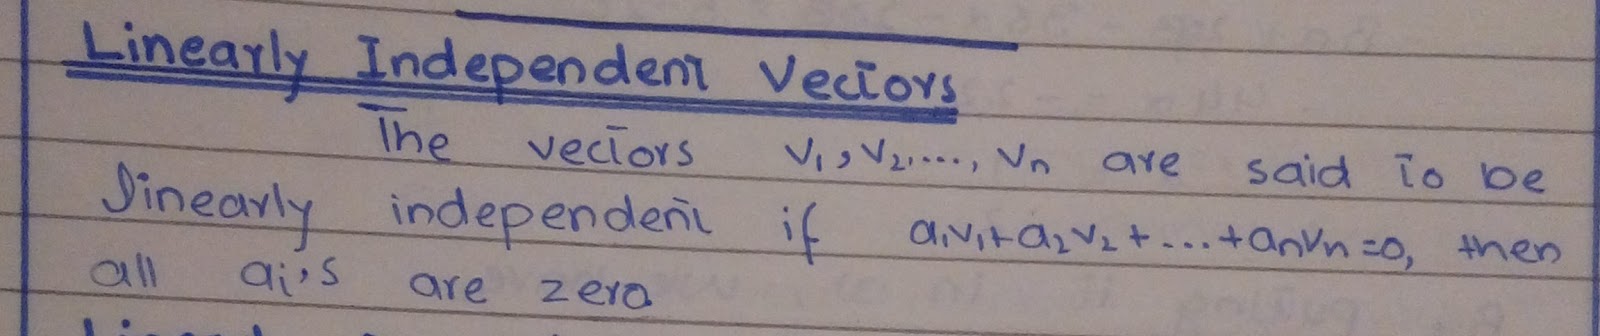 Linearly Independent Vectors
The vectors v₁, v₂,..., vₙ are said to be
linearly independent if a₁v₁+a₂v₂+...+aₙvₙ=0, then
all aᵢ's are zero